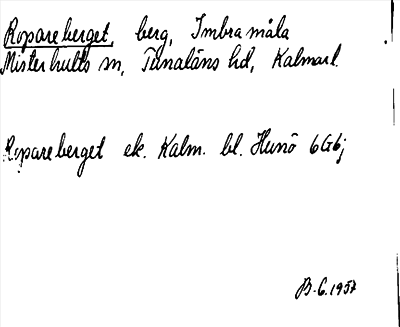 Ropareberget, berg, Imbramåla
Misterhults sn, Tunaläns hd, Kalmarl.
Ropareberget ek. Kalm. bl. Hunö 6G6j
B.G. 1957